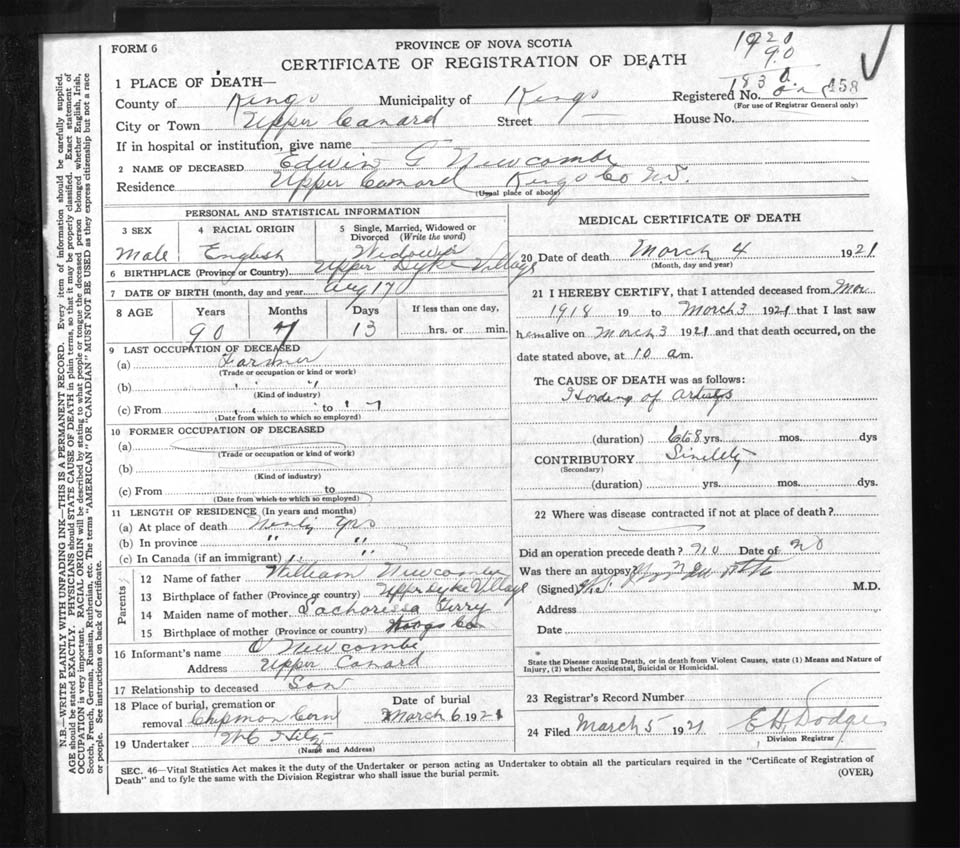 FORM 6
PROVINCE OF NOVA SCOTIA
CERTIFICATE OF REGISTRATION OF DEATH
1921
90
1 PLACE OF DEATH—
County of Kings Municipality of Kings Registered No. 158
(For use of Registrar General only)
City or Town Upper Canard Street House No.
If in hospital or institution, give name
2 NAME OF DECEASED Edwin G Newcombe
Residence Upper Canard Kings Co N.S.
(Usual place of abode)
PERSONAL AND STATISTICAL INFORMATION
3 SEX 4 RACIAL ORIGIN 5 Single, Married, Widowed or Divorced (Write the word)
Male English Widower
6 BIRTHPLACE (Province or Country) Upper Dyke Village
7 DATE OF BIRTH (month, day and year Aug 17
8 AGE Years Months Days If less than one day,
90 7 13 hrs. or min.
9 LAST OCCUPATION OF DECEASED
(a) Farmer
(Trade or occupation or kind or work)
(b) " "
(Kind of industry)
(c) From to
(Date from which to which so employed)
10 FORMER OCCUPATION OF DECEASED
(a)
(Trade or occupation or kind of work)
(b)
(Kind of industry)
(c) From to
(Date from which to which so employed)
11 LENGTH OF RESIDENCE (In years and months)
(a) At place of death Ninty yrs
(b) In province " "
(c) In Canada (if an immigrant)
Parents
12 Name of father William Newcombe
13 Birthplace of father (Province or country) Uppr Dyke Village
14 Maiden name of mother Terry
15 Birthplace of mother (Province or country) Kings Co
16 Informant's name O Newcombe
Address Upper Canard
17 Relationship to deceased Son
18 Place of burial, cremation or Date of burial
removal Chipman Cem March 6, 1921
19 Undertaker
(Name and Address)
MEDICAL CERTIFICATE OF DEATH
20 Date of death March 4 1921
(Month, day and year)
21 I HEREBY CERTIFY, that I attended deceased from Mar
1918 19 to March 3 1921 that I last saw
him alive on March 3 1921 and that death occurred, on the
date stated above, at 10 am.
The CAUSE OF DEATH was as follows:
of
(duration) 6 to 8 yrs. mos. dys
CONTRIBUTORY
(Secondary)
(duration) yrs. mos. dys.
22 Where was disease contracted if not at place of death?
Did an operation precede death? no Date of no
Was there an autopsy?
(Signed) M.D.
Address
Date
State the Disease causing Death, or in death from Violent Causes, state (1) Means and Nature of
Injury, (2) whether Accidental, Suicidal or Homicidal.
23 Registrar's Record Number
24 Filed March 5 1921 E H Dodge
Division Registrar
SEC. 46—Vital Statistics Act makes it the duty of the Undertaker or person acting as Undertaker to obtain all the particulars required in the "Certificate of Registration of
Death" and to fyle the same with the Division Registrar who shall issue the burial permit. (OVER)
N.B.—WRITE PLAINLY WITH UNFADING INK—THIS IS A PERMANENT RECORD. Every item of information should be carefully supplied.
AGE should be stated EXACTLY. PHYSICIANS should STATE CAUSE OF DEATH in plain terms, so that it may be properly classified. Exact statement of
OCCUPATION is very important. RACIAL ORIGIN will be described by stating to what people or tongue the deceased person belonged whether English, Irish,
Scotch, French, German, Russian, Ruthenian, etc. The terms "AMERICAN" OR "CANADIAN" MUST NOT BE USED as they express citizenship but not a race
or people. See instructions on back of Certificate.